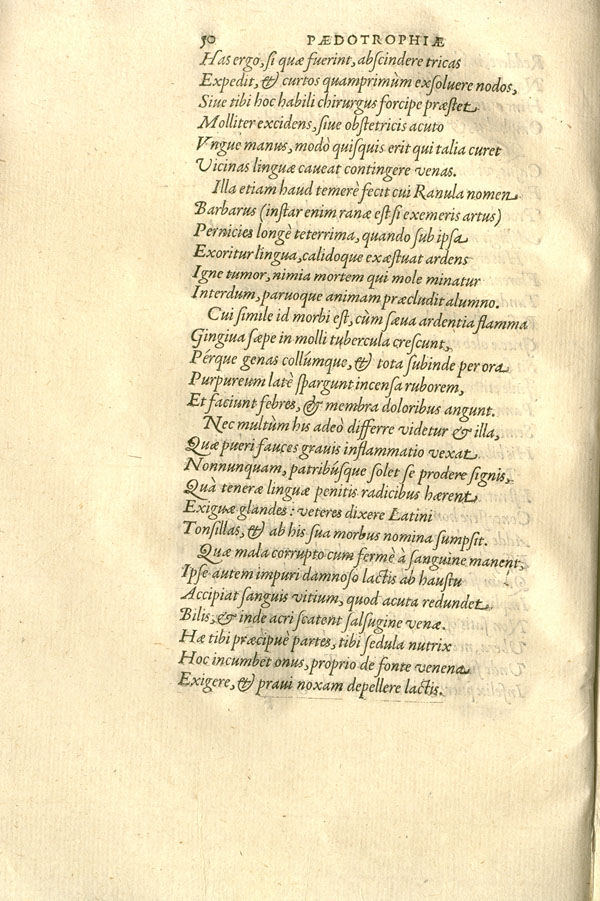 50 PÆDOTROPHIÆ
Has ergo, si quæ fuerint, abscindere tricas
Expedit, & curtos quamprimùm exsoluere nodos,
Siue tibi hoc habili chirurgus forcipe præstet
Molliter excidens, siue obstetricis acuto
Vngue manus, modò quisquis erit qui talia curet
Vicinas linguæ caueat contingere venas.
Illa etiam haud temerè fecit cui Ranula nomen
Barbarus (instar enim ranæ est si exemeris artus)
Pernicies longè teterrima, quando sub ipsa
Exoritur lingua, calidoque exæstuat ardens
Igne tumor, nimia mortem qui mole minatur
Interdum, paruoque animam præcludit alumno.
Cui simile id morbi est, cùm sæua ardentia flamma
Gingiua sæpe in molli tubercula crescunt,
Pérque genas collúmque, & tota subinde per ora
Purpureum latè spargunt incensa ruborem,
Et faciunt febres, & membra doloribus angunt.
Nec multùm his adeò differre videtur & illa,
Quæ pueri fauces grauis inflammatio vexat
Nonnunquam, patribúsque solet se prodere signis,
Quà teneræ linguæ penitis radicibus hærent
Exiguæ glandes: veteres dixere Latini
Tonsillas, & ab his sua morbus nomina sumpsit.
Quæ mala corrupto cùm fermè à sanguine manent,
Ipse autem impuri damnoso lactis ab haustu
Accipiat sanguis vitium, quod acuta redundet
Bilis, & inde acri scatent salsugine venæ.
Hæ tibi præcipuè partes, tibi sedula nutrix
Hoc incumbet onus, proprio de fonte venena
Exigere, & praui noxam depellere lactis.